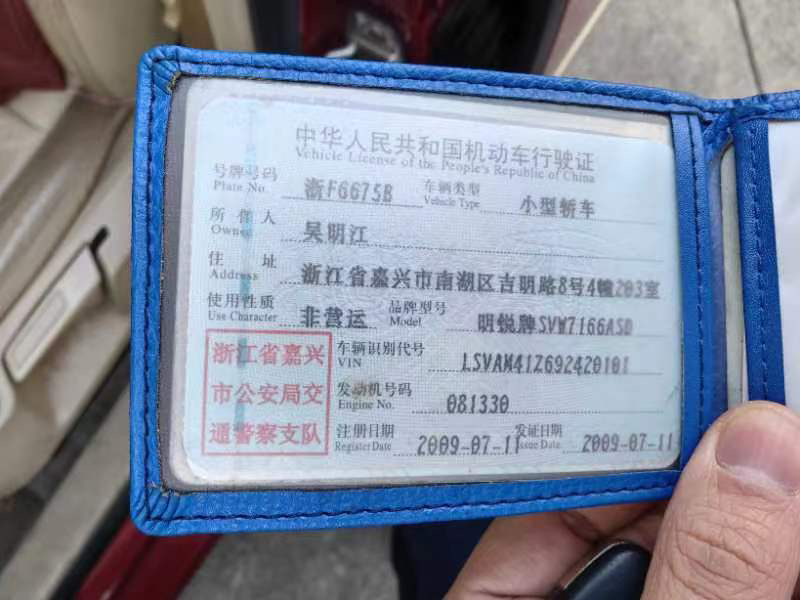 中华人民共和国机动车行驶证
Vehicle License of the People's Republic of China
号牌号码 浙F6675B 车辆类型 小型轿车
Plate No. Vehicle Type
所有人 吴明江
Owner
住址 浙江省嘉兴市南湖区吉明路8号4幢203室
Address
使用性质 非营运 品牌型号 明锐牌SVW7166ASD
Use Character Model
浙江省嘉兴
市公安局交
通警察支队
车辆识别代号 LSVAM41Z692420101
VIN
发动机号码 081330
Engine No.
注册日期 2009-07-11 发证日期 2009-07-11
Register Date Issue Date